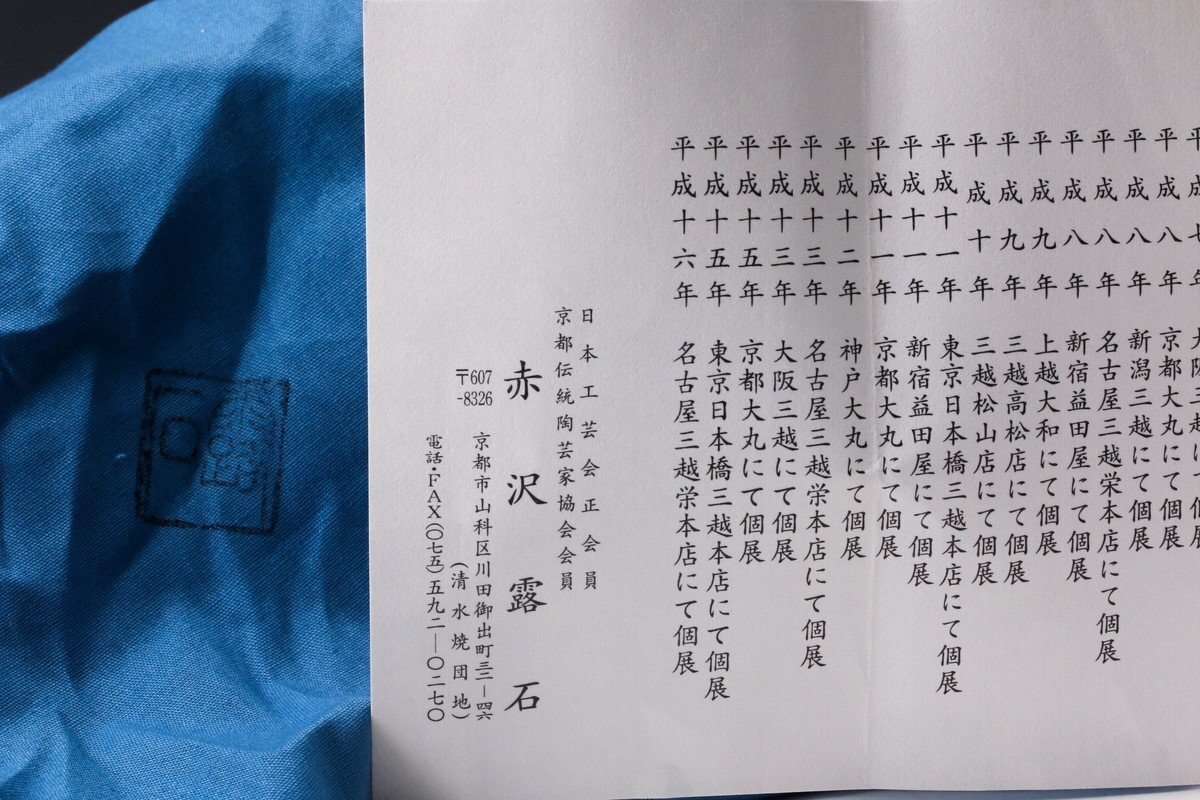 平成八年 京都大丸にて個展
平成八年 新潟三越にて個展
平成八年 名古屋三越栄本店にて個展
平成八年 新宿益田屋にて個展
平成九年 上越大和にて個展
平成九年 三越高松店にて個展
平成十年 三越松山店にて個展
平成十一年 東京日本橋三越本店にて個展
平成十一年 新宿益田屋にて個展
平成十一年 京都大丸にて個展
平成十二年 神戸大丸にて個展
平成十三年 名古屋三越栄本店にて個展
平成十三年 大阪三越にて個展
平成十五年 京都大丸にて個展
平成十五年 東京日本橋三越本店にて個展
平成十六年 名古屋三越栄本店にて個展
日本工芸会正会員
京都伝統陶芸家協会会員
赤沢露石
〒607-8326 京都市山科区川田御出町三三―四六
(清水焼団地)
電話・FAX(〇七五)五九二―〇二七〇